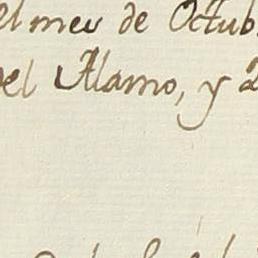 el mes de Octub
del Alamo, y